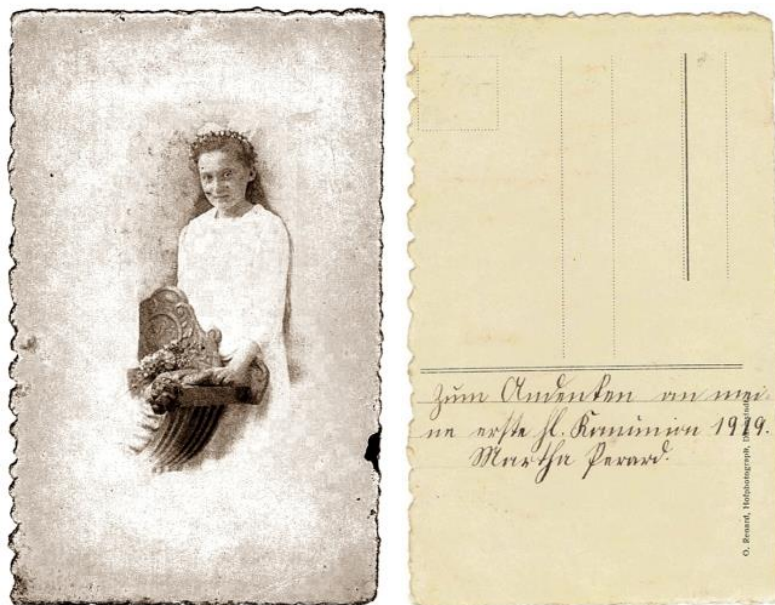 Zum Andenken an mei-
ne erste hl. Kommunion 1919.
Martha Perard.
O. Renard, Hofphotograph,